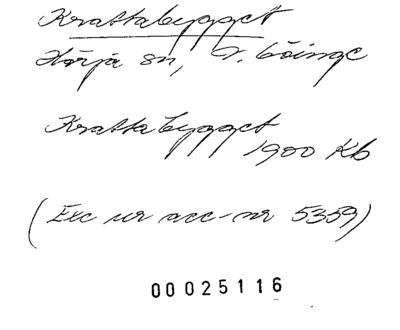 Krattabygget
Hörja sn, V. Göinge
Krattabygget
1900 Kb
(Exc ur acc-nr 5359)
00025116